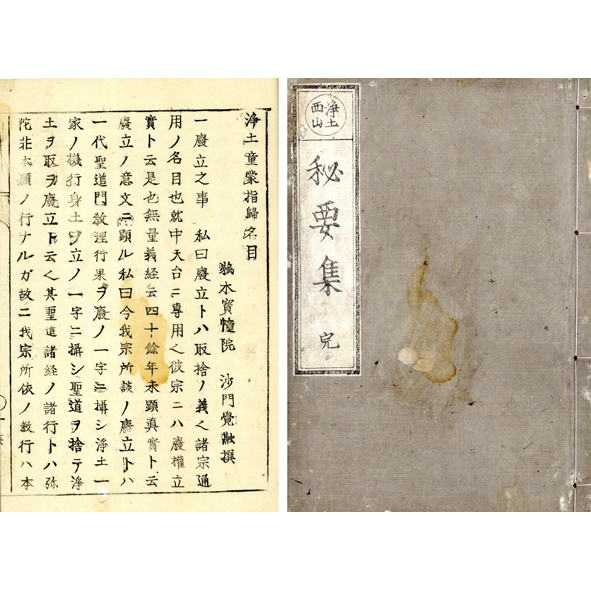 浄土童蒙指歸名目
鵜木寳幢院 沙門覺融撰
一廢立之事 私曰廢立トハ取捨ノ義也諸宗通
用ノ名目也就中天台ニ專用之彼宗ニハ廢權立
實ト云是也無量義経云四十餘年未顕真實ト云
廢立ノ意文ニ顕ル私曰今我宗所談ノ廢立トハ
一代聖道門教理行果ヲ廢ノ一字ニ攝シ浄土一
家ノ機行身土ヲ立ノ一字ニ攝シ聖道ヲ捨テ浄
土ヲ取ヲ廢立ト云也其聖道諸経ノ諸行トハ弥
陀非本願ノ行ナルガ故ニ我宗所依ノ教行ハ本
浄土
西山
秘要集 完